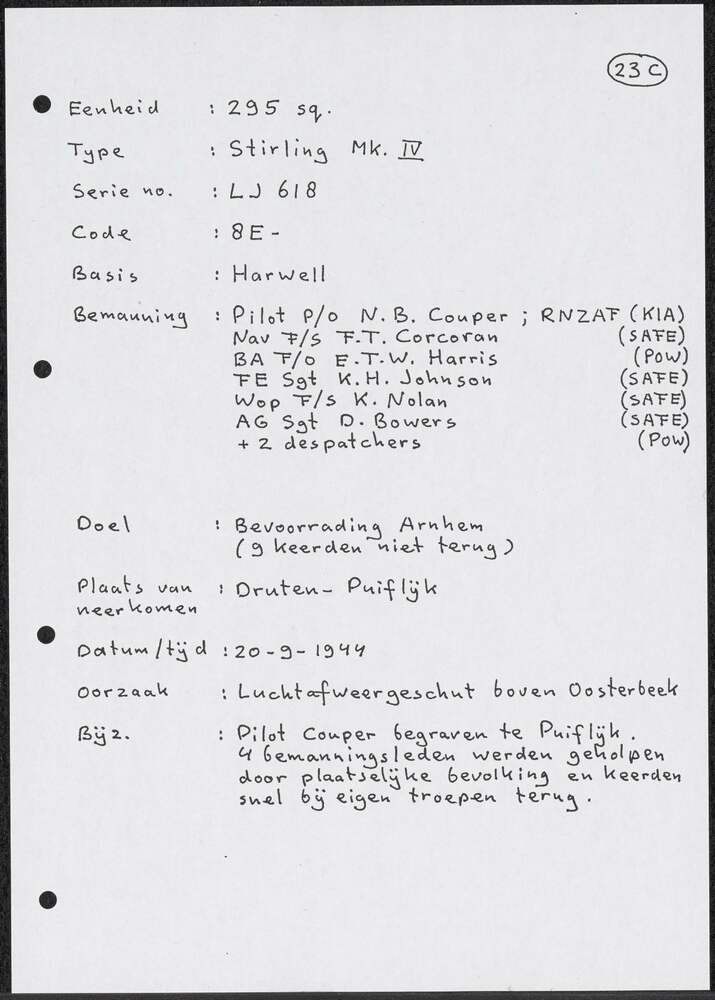 23 C
Eenheid : 295 sq.
Type : Stirling Mk. IV
Serie no. : LJ 618
Code : 8E -
Basis : Harwell
Bemanning : Pilot P/o N.B. Couper ; RNZAF (KIA)
Nav F/S F.T. Corcoran (SAFE)
BA F/O E.T.W. Harris (POW)
FE Sgt K.H. Johnson (SAFE)
Wop F/S K. Nolan (SAFE)
AG Sgt D. Bowers (SAFE)
+ 2 despatchers (POW)
Doel : Bevoorrading Arnhem
(9 keerden niet terug)
Plaats van : Druten - Puiflijk
neerkomen
Datum/tijd : 20-9-1944
oorzaak : Luchtafweergeschut boven Oosterbeek
Bijz. : Pilot Couper begraven te Puiflijk.
4 bemanningsleden werden geholpen
door plaatselijke bevolking en keerden
snel bij eigen troepen terug.